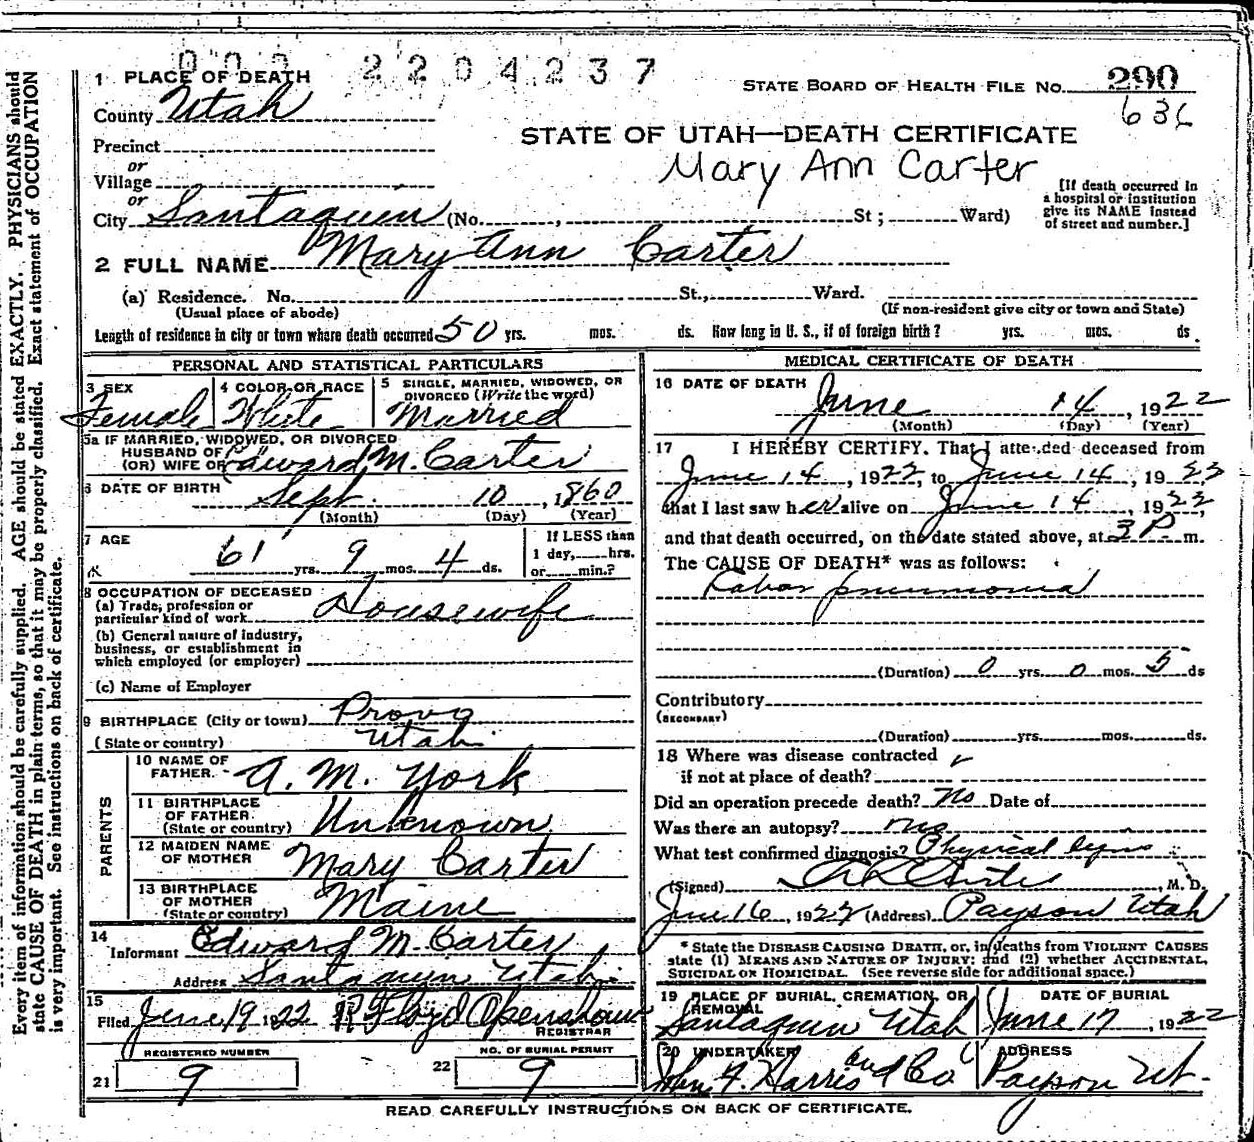 000 2204237
1 PLACE OF DEATH
STATE BOARD OF HEALTH FILE No. 290
County Utah
636
STATE OF UTAH—DEATH CERTIFICATE
Precinct
Mary Ann Carter
or
Village
or
City Santaquin (No. , St ; Ward)
[If death occurred in
a hospital or institution
give its NAME instead
of street and number.]
2 FULL NAME Mary Ann Carter
(a) Residence. No. St., Ward.
(Usual place of abode) (If non-resident give city or town and State)
Length of residence in city or town where death occurred 50 yrs. mos. ds. How long in U. S., if of foreign birth ? yrs. mos. ds.
PERSONAL AND STATISTICAL PARTICULARS
3 SEX Female
4 COLOR OR RACE White
5 SINGLE, MARRIED, WIDOWED, OR
DIVORCED (Write the word)
Married
5a IF MARRIED, WIDOWED, OR DIVORCED
HUSBAND OF
(OR) WIFE OF Edward M. Carter
6 DATE OF BIRTH Sept. 10, 1860
(Month) (Day) (Year)
7 AGE 61 yrs. 9 mos. 4 ds.
If LESS than
1 day, hrs.
or min.?
8 OCCUPATION OF DECEASED
(a) Trade, profession or
particular kind of work Housewife
(b) General nature of industry,
business, or establishment in
which employed (or employer)
(c) Name of Employer
9 BIRTHPLACE (City or town) Provo
(State or country) Utah
PARENTS
10 NAME OF
FATHER. A. M. York
11 BIRTHPLACE
OF FATHER.
(State or country) Unknown
12 MAIDEN NAME
OF MOTHER Mary Carter
13 BIRTHPLACE
OF MOTHER
(State or country) Maine
14
Informant Edward M. Carter
Address Santaquin Utah.
15
Filed June 19 1922 R Floyd Openshaw
REGISTRAR
REGISTERED NUMBER
21 9
NO. OF BURIAL PERMIT
22 9
MEDICAL CERTIFICATE OF DEATH
16 DATE OF DEATH
June 14, 1922
(Month) (Day) (Year)
17 I HEREBY CERTIFY. That I attended deceased from
June 14, 1922, to June 14, 1922
that I last saw her alive on June 14, 1922,
and that death occurred, on the date stated above, at 3 P. m.
The CAUSE OF DEATH* was as follows:
Lobar pneumonia
(Duration) 0 yrs. 0 mos. 5 ds
Contributory
(SECONDARY)
(Duration) yrs. mos. ds.
18 Where was disease contracted
if not at place of death?
Did an operation precede death? No Date of
Was there an autopsy? no
What test confirmed diagnosis? Physical signs
(Signed) , M. D.
June 16, 1922 (Address) Payson Utah
* State the DISEASE CAUSING DEATH, or, in deaths from VIOLENT CAUSES
state (1) MEANS AND NATURE OF INJURY; and (2) whether ACCIDENTAL,
SUICIDAL OR HOMICIDAL. (See reverse side for additional space.)
19 PLACE OF BURIAL, CREMATION, OR
REMOVAL
Santaquin Utah
DATE OF BURIAL
June 17, 1922
20 UNDERTAKER
John F. Harris and Co
ADDRESS
Payson Ut.
READ CAREFULLY INSTRUCTIONS ON BACK OF CERTIFICATE.
Every item of information should be carefully supplied. AGE should be stated EXACTLY. PHYSICIANS should
state CAUSE OF DEATH in plain terms, so that it may be properly classified. Exact statement of OCCUPATION
is very important. See instructions on back of certificate.